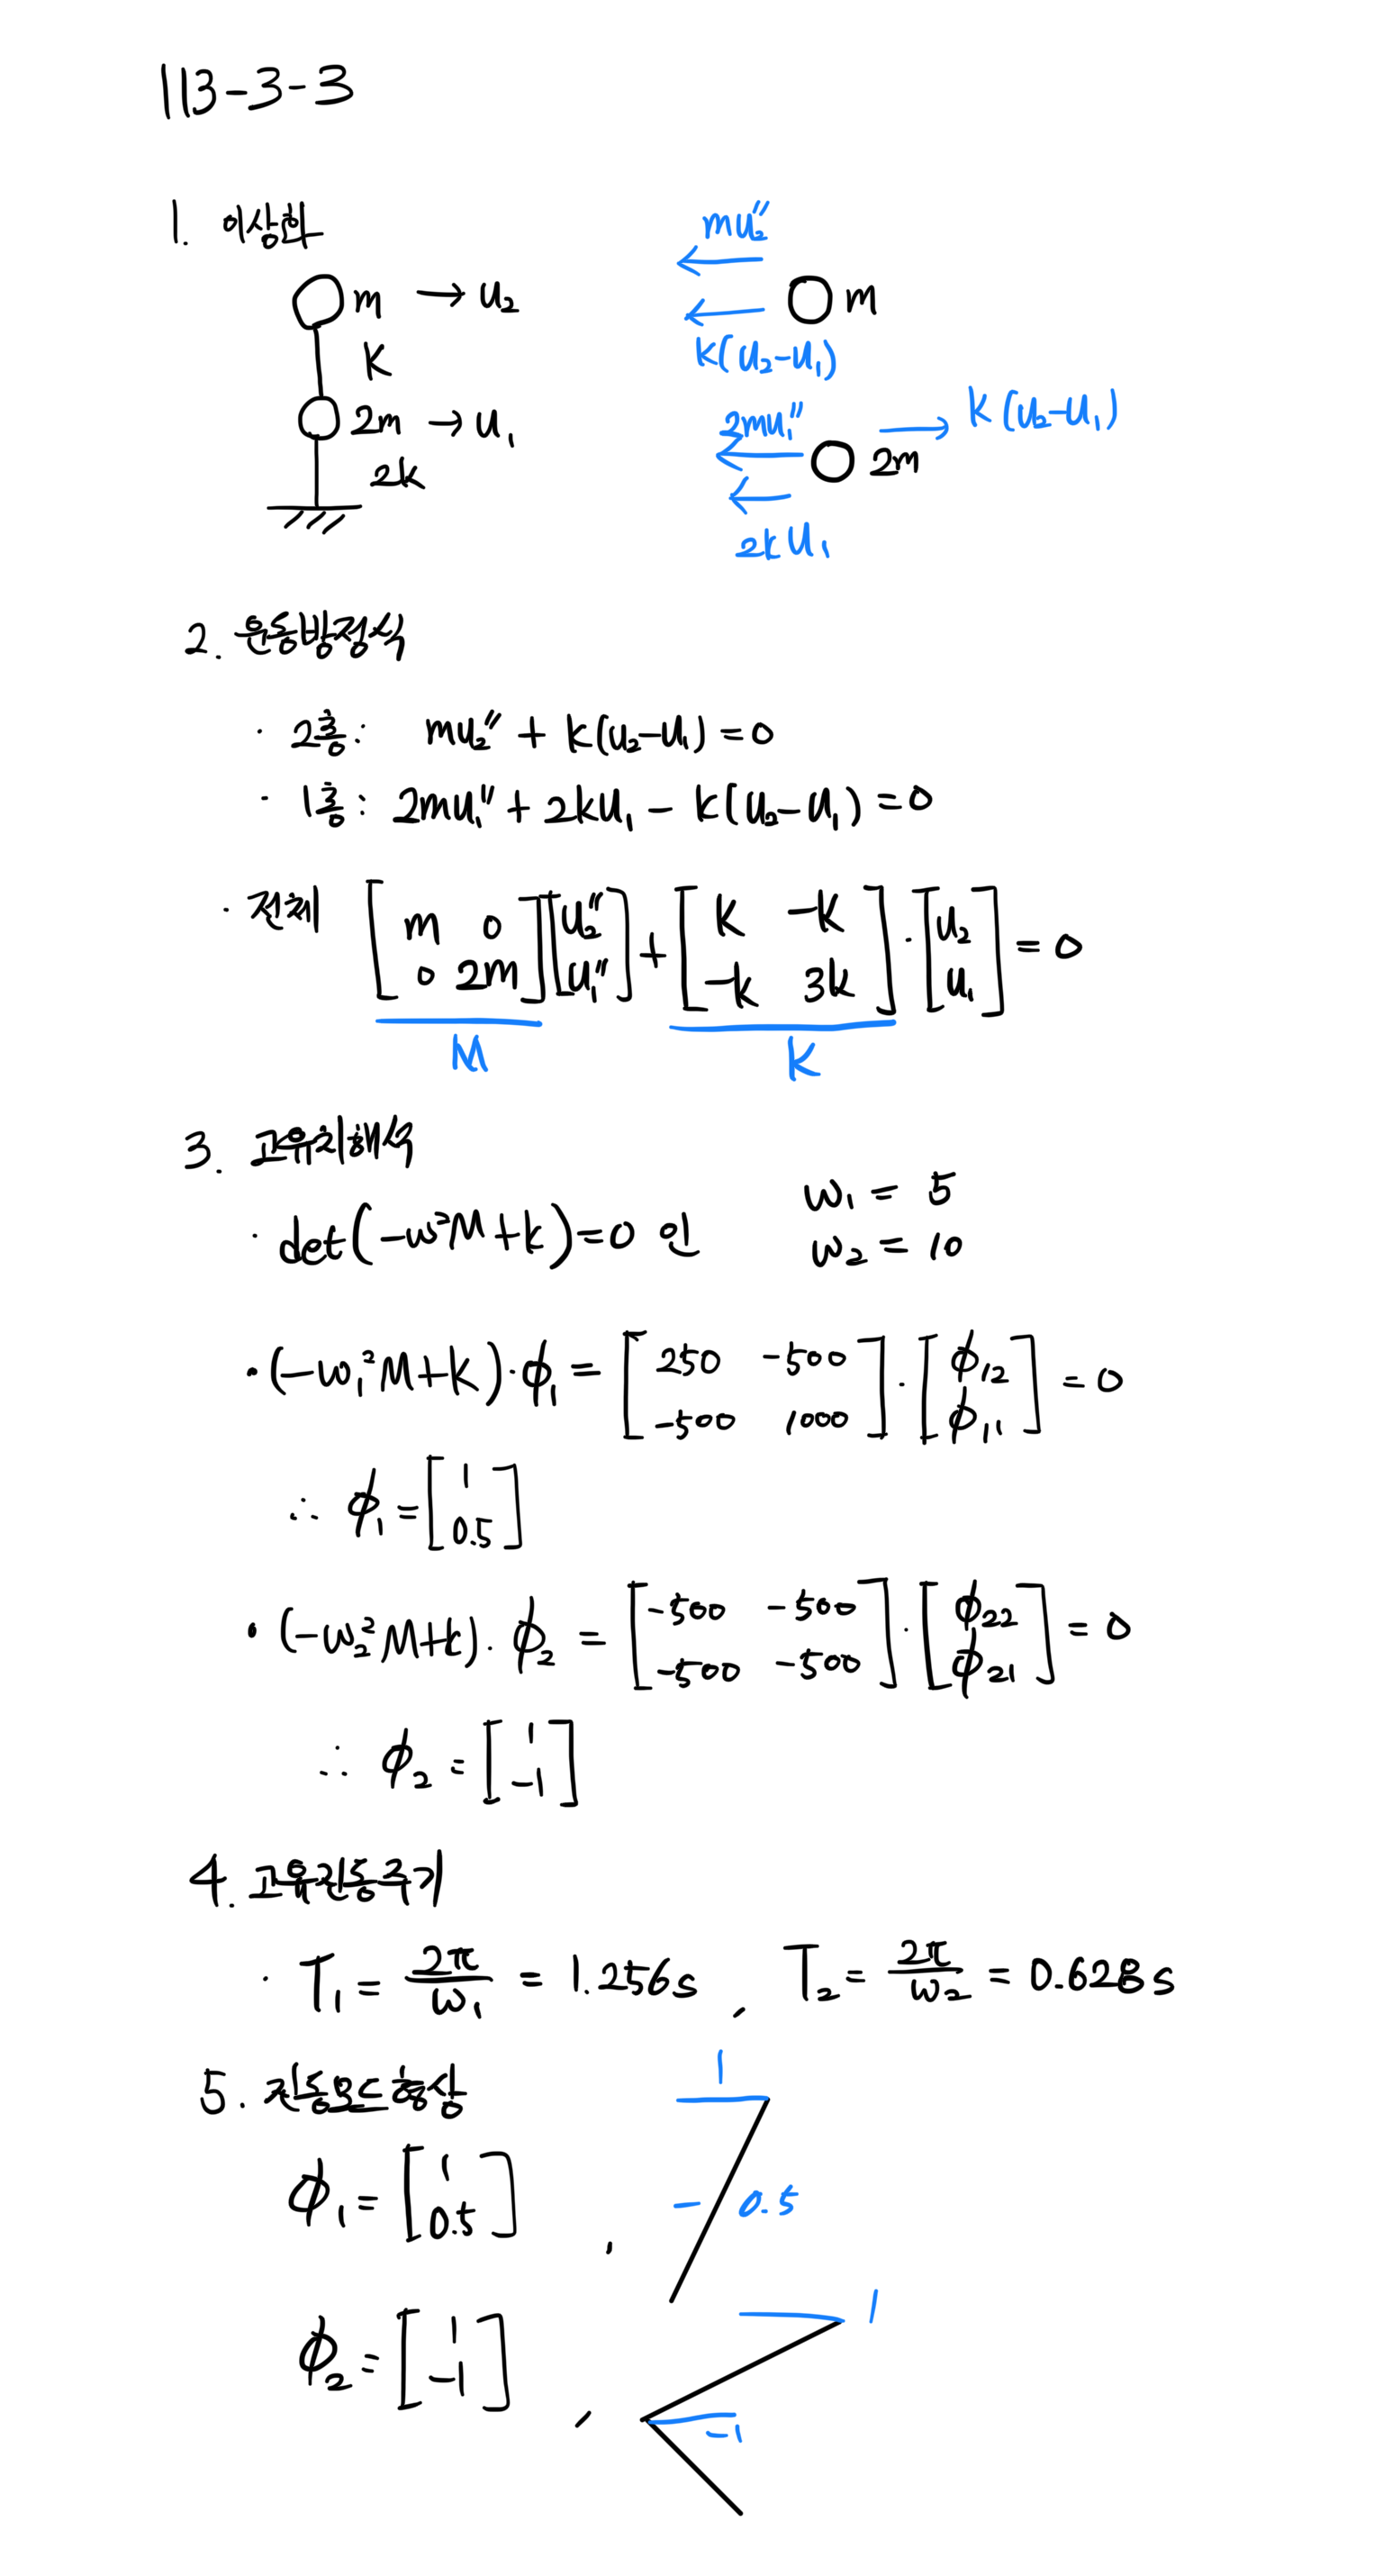 113-3-3
1. 이상화
m → u₂
k
2m → u₁
2k
mu₂″
m
k(u₂-u₁)
2mu₁″
k(u₂-u₁)
2m
2ku₁
2. 운동방정식
· 2층: mu₂″ + k(u₂-u₁) = 0
· 1층: 2mu₁″ + 2ku₁ - k(u₂-u₁) = 0
· 전체 [m 0; 0 2m][u₂″; u₁″] + [k -k; -k 3k]·[u₂; u₁] = 0
M
K
3. 고유치해석
· det(-ω²M+K)=0 인
ω₁ = 5
ω₂ = 10
· (-ω₁²M+K)·ϕ₁ = [250 -500; -500 1000]·[ϕ₁₂; ϕ₁₁] = 0
∴ ϕ₁ = [1; 0.5]
· (-ω₂²M+K)·ϕ₂ = [-500 -500; -500 -500]·[ϕ₂₂; ϕ₂₁] = 0
∴ ϕ₂ = [1; -1]
4. 고유진동주기
· T₁ = 2π/ω₁ = 1.256s , T₂ = 2π/ω₂ = 0.628s
5. 진동모드형상
1
ϕ₁ = [1; 0.5] ,
0.5
1
ϕ₂ = [1; -1] ,
-1